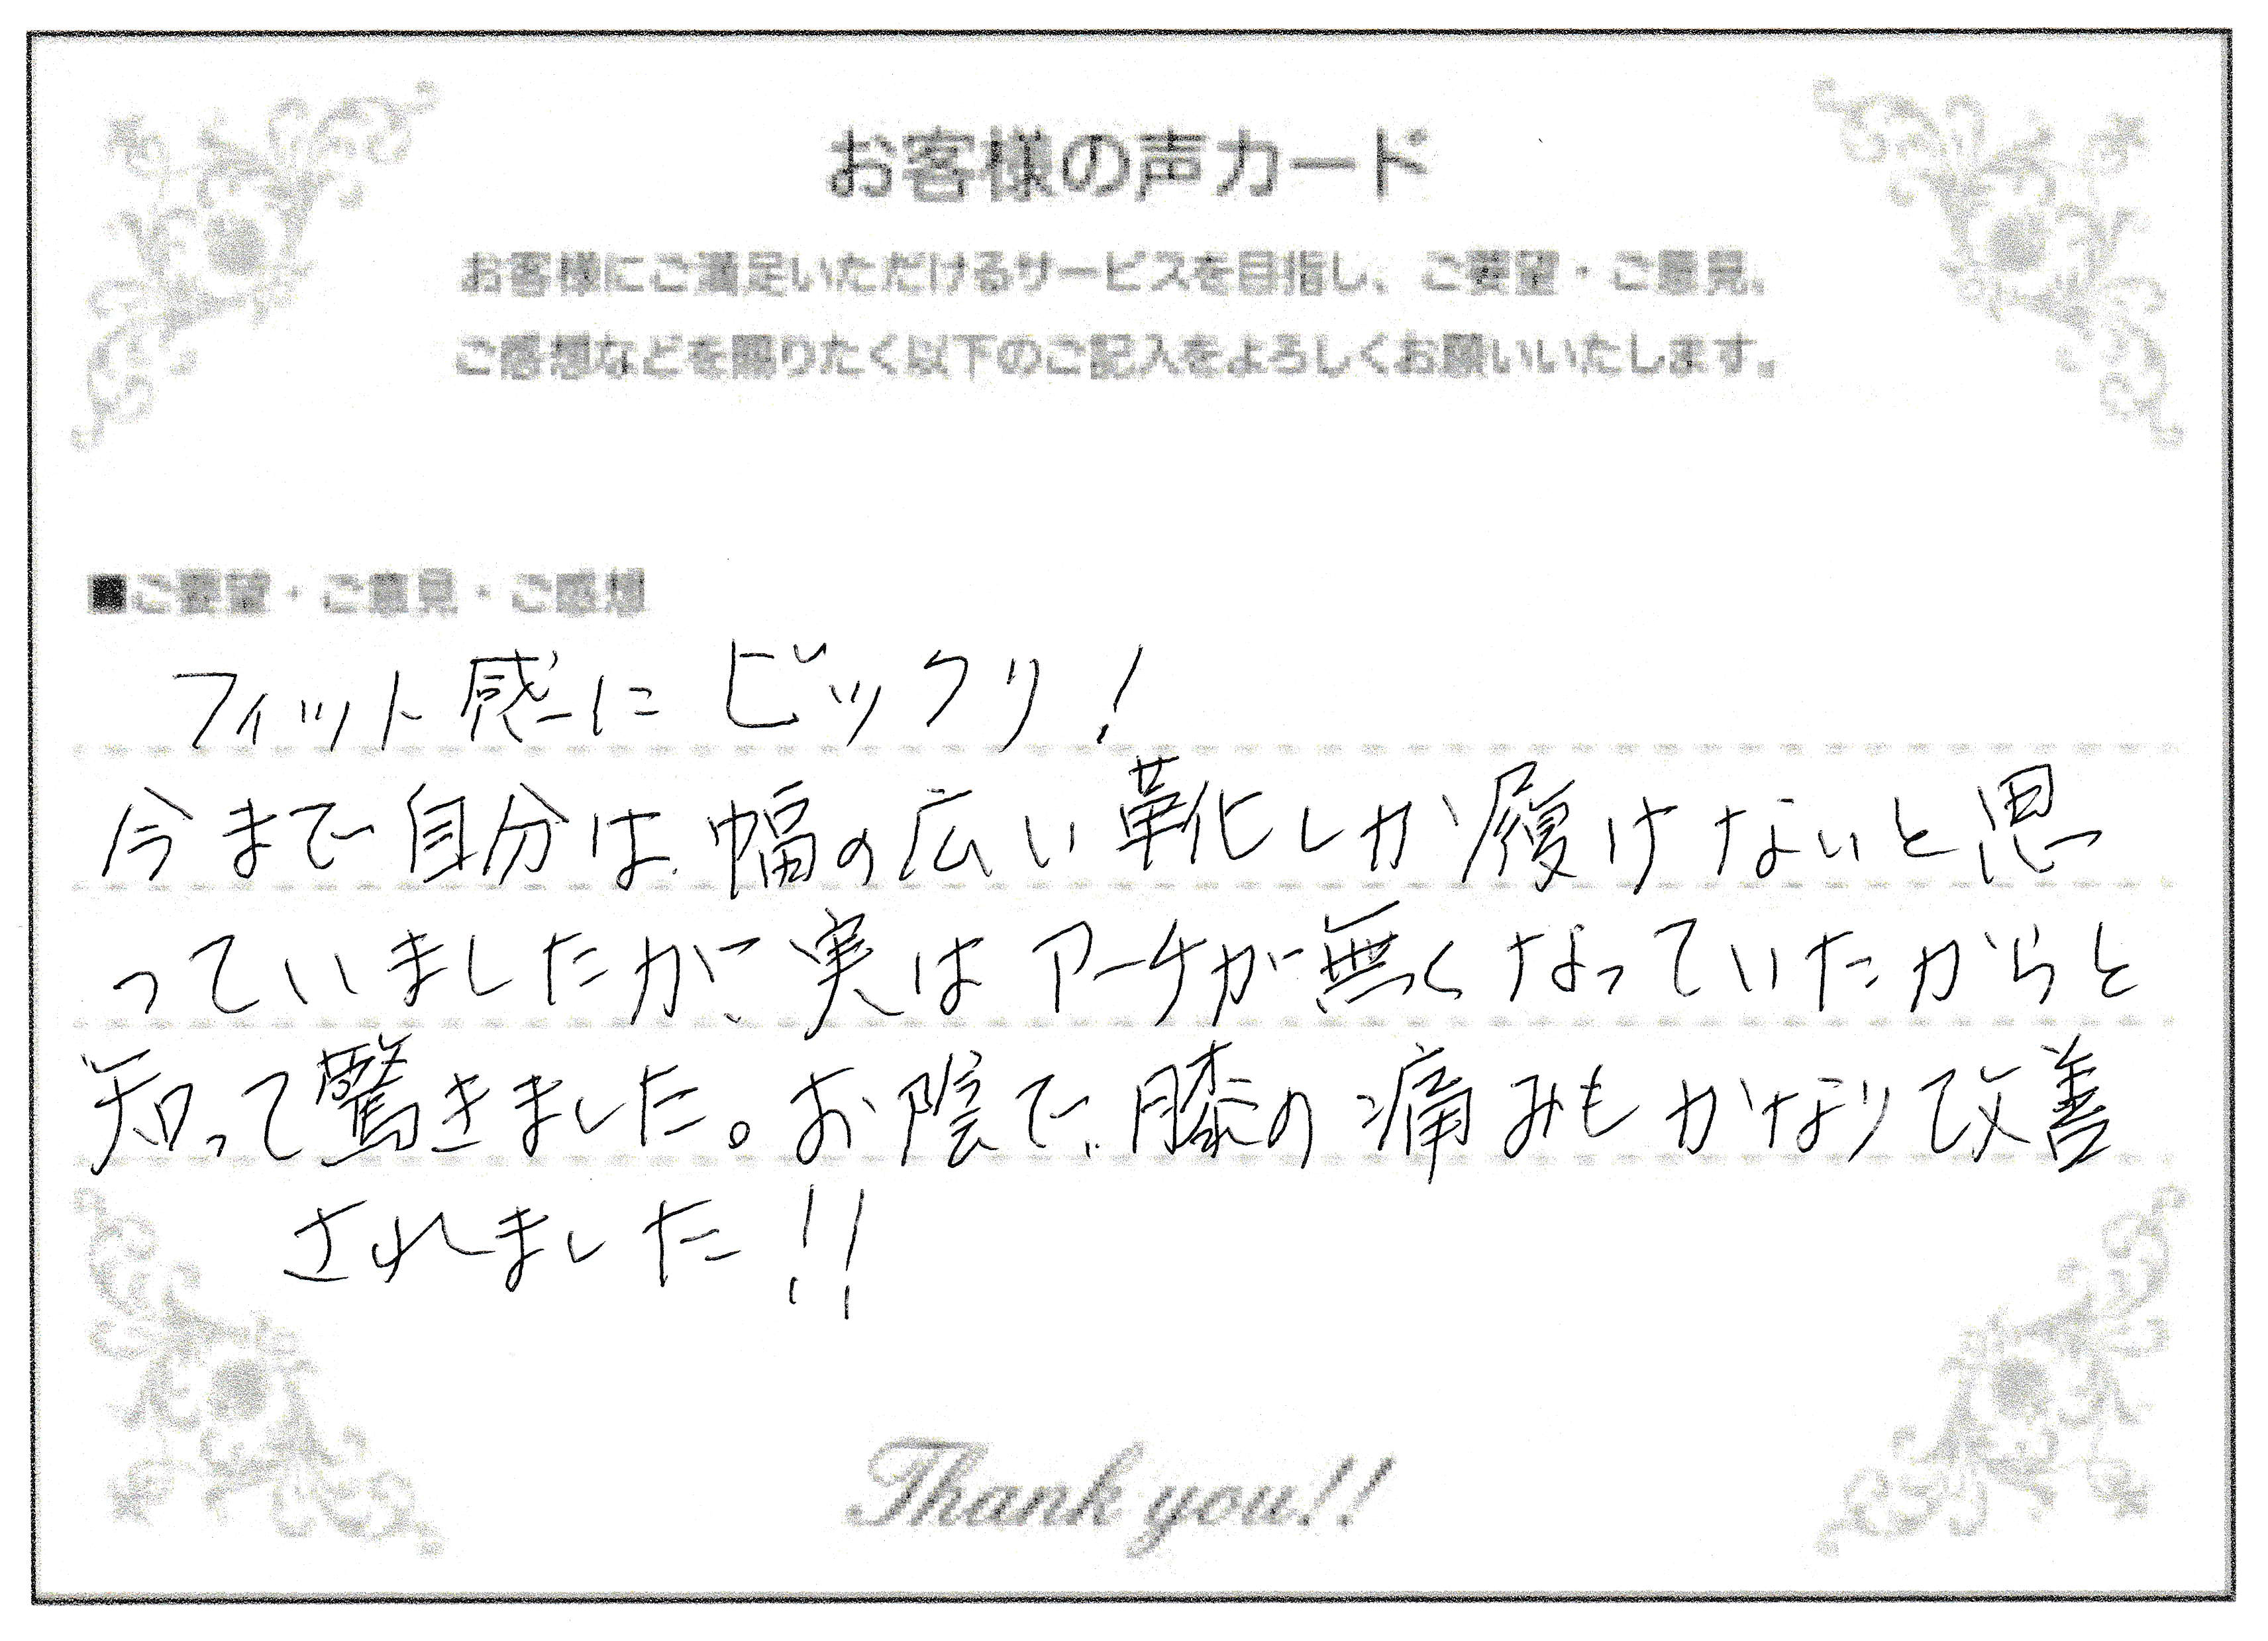 お客様の声カード
お客様にご満足いただけるサービスを目指し、ご要望・ご意見、
ご感想などを賜りたく以下のご記入をよろしくお願いいたします。
■ご要望・ご意見・ご感想
フィット感にビックリ！
今まで自分は、幅の広い靴しか履けないと思
っていましたが、実はアーチが無くなっていたからと
知って驚きました。お陰で、膝の痛みもかなり改善
されました！！
Thank you!!